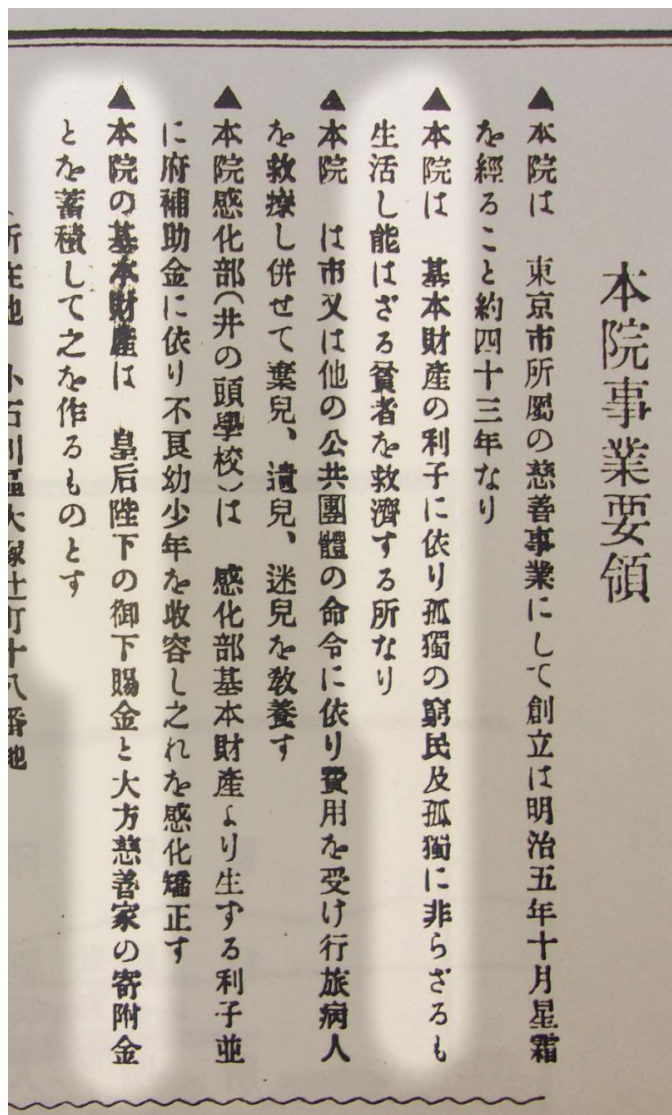 本院事業要領
▲本院は　東京市所屬の慈善事業にして創立は明治五年十月星霜
を經ること約四十三年なり
▲本院は　基本財產の利子に依り孤獨の窮民及孤獨に非らざるも
生活し能はざる貧者を救濟する所なり
▲本院　は市又は他の公共團體の命令に依り費用を受け行旅病人
を救療し併せて棄兒、遺兒、迷兒を敎養す
▲本院感化部(井の頭學校)は　感化部基本財產より生する利子並
に府補助金に依り不良幼少年を收容し之れを感化矯正す
▲本院の基本財產は　皇后陛下の御下賜金と大方慈善家の寄附金
とを蓄積して之を作るものとす
所在地　小石川區大塚辻町十八番地